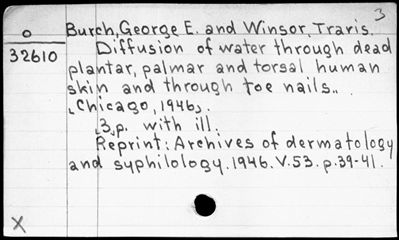 3
o Burch, George E. and Winsor, Travis.
32610 Diffusion of water through dead
plantar, palmar and torsal human
skin and through toe nails..
[Chicago, 1946].
[3]p. with ill.
Reprint: Archives of dermatology
and syphilology. 1946. V.53. p.39-41.
X